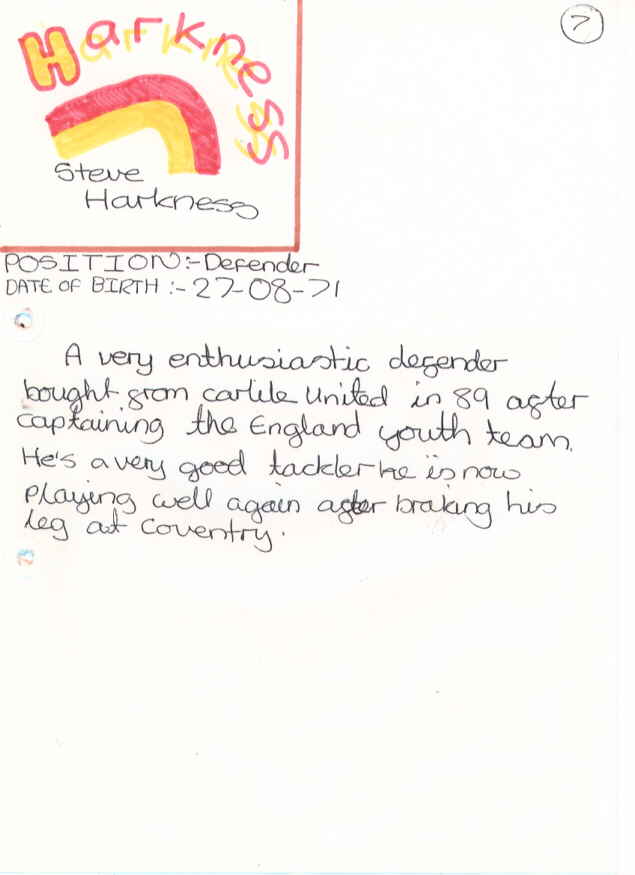 7
Harkness
Steve
Harkness
POSITION:- Defender
DATE OF BIRTH :- 27-08-71
A very enthusiastic defender
bought from carlile United in 89 after
captaining the England youth team.
He's a very good tackler he is now
playing well again after braking his
leg at Coventry.